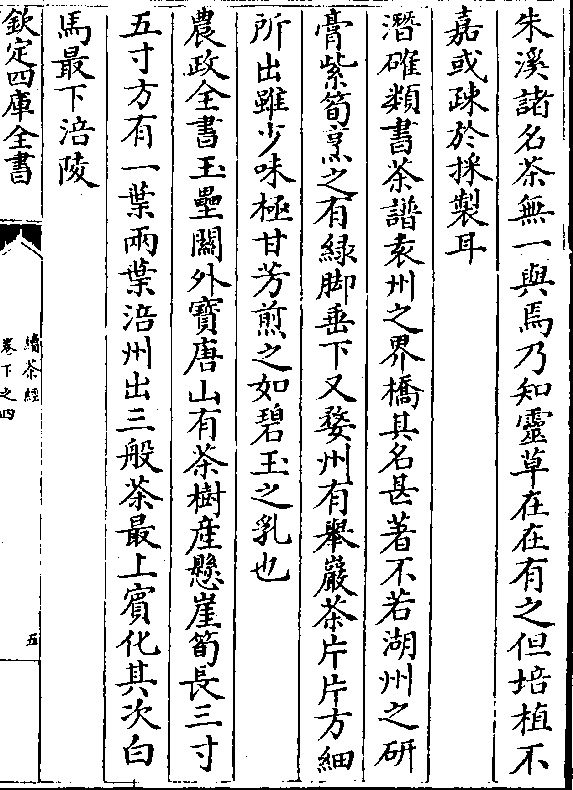 朱溪諸名茶無一與焉乃知靈草在在有之但培植不
嘉或疎於採製耳
潛確類書茶譜袁州之界橋其名甚著不若湖州之研
膏紫筍烹之有綠脚垂下又婺州有舉巖茶片片方細
所出雖少味極甘芳煎之如碧玉之乳也
農政全書玉壘關外寶唐山有茶樹產懸崖筍長三寸
五寸方有一葉兩葉涪州出三般茶最上賓化其次白
馬最下涪陵
欽定四庫全書
續茶經
卷下之四
五